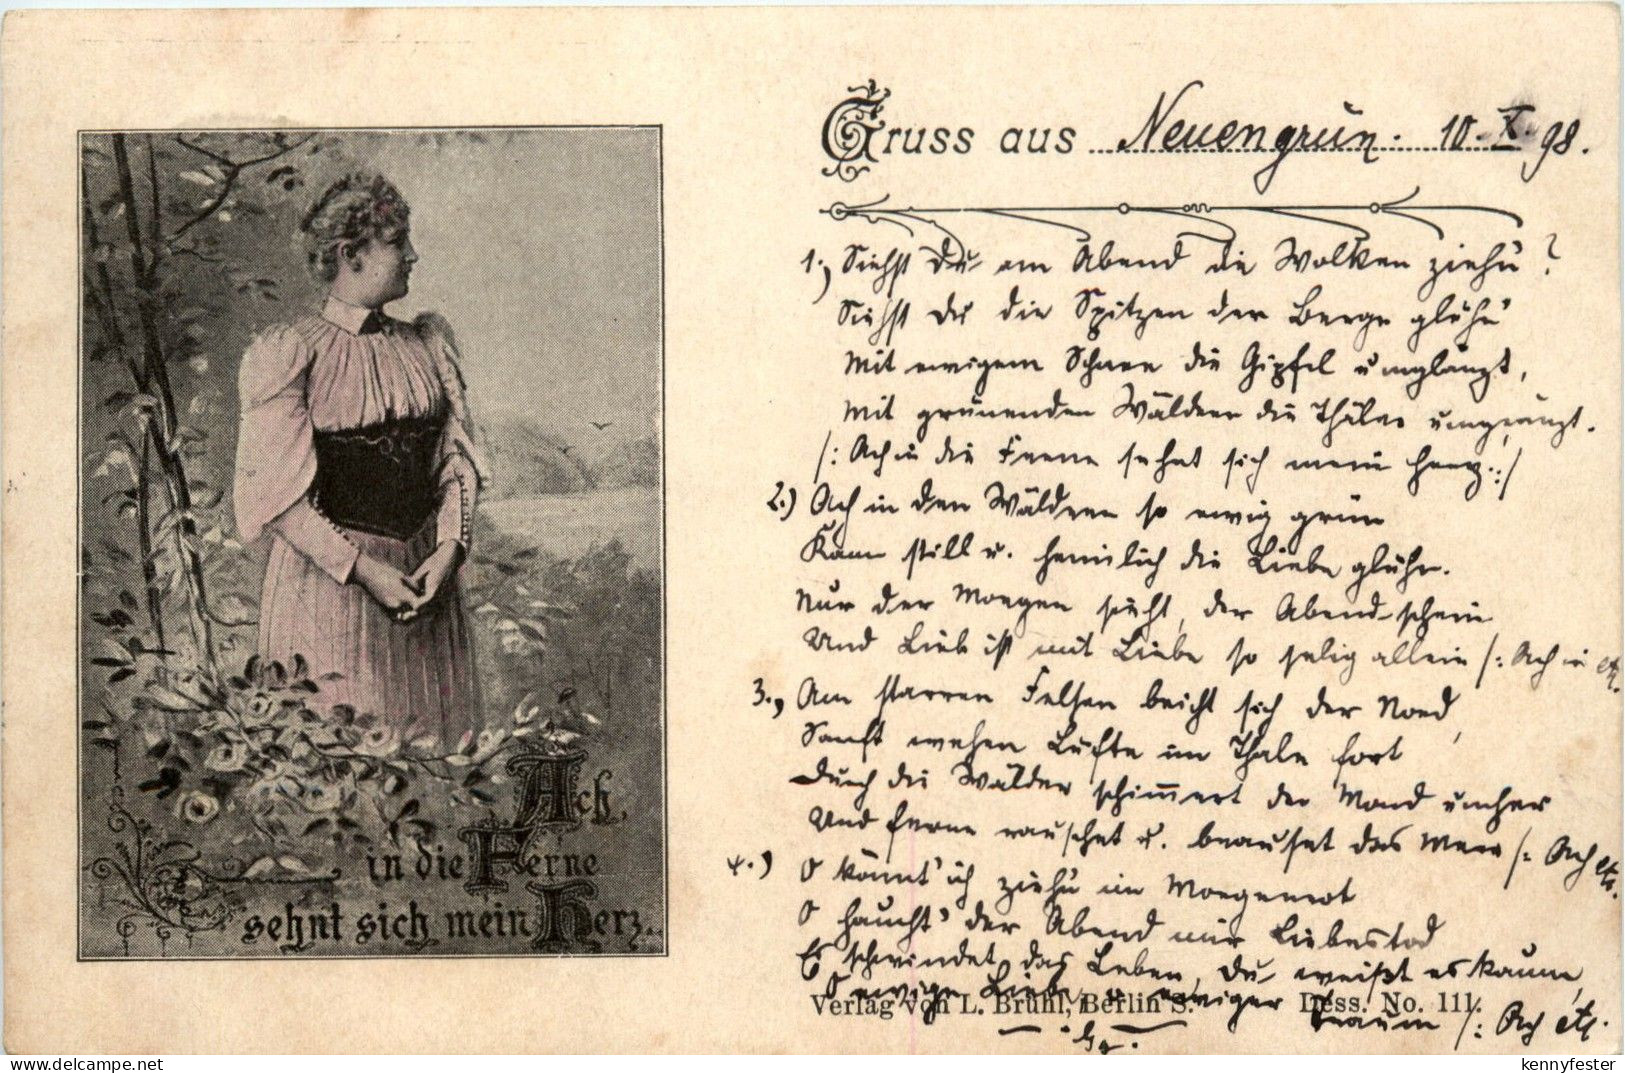 Gruss aus Neuengrün. 10. X. 98.
1.) Siehst Du am Abend die Wolken ziehn?
Siehst Du die Spitzen der Berge glühn
Mit ewigem Schnee die Gipfel umglänzt,
Mit grünenden Wäldern die Thäler umgränzt.
/: Ach in die Ferne sehnt sich mein Herz :/
2.) Ach in den Wäldern so ewig grün
Kann still u. heimlich die Liebe glühn.
Nur der Morgen sieht, der Abend-schein
Und Lieb ist mit Liebe so selig allein /: Ach in etc.
3.) Am starren Felsen bricht sich der Nord,
Sanft wehen Lüfte im Thale fort
Durch die Wälder schimmert der Mond umher
Und ferne rauschet u. brauset das Meer /: Ach etc.
4.) O könnt' ich ziehn im Morgenrot
O haucht' der Abend mir Liebestod
Es schwindet das Leben, Du weißt es kaum,
O ewige Liebe, ewiger
Traum /: Ach etc.
Verlag von L. Brühl, Berlin S. Dess. No. 111.
Ach,
in die Ferne
sehnt sich mein Herz..
delcampe.net
kennyfester